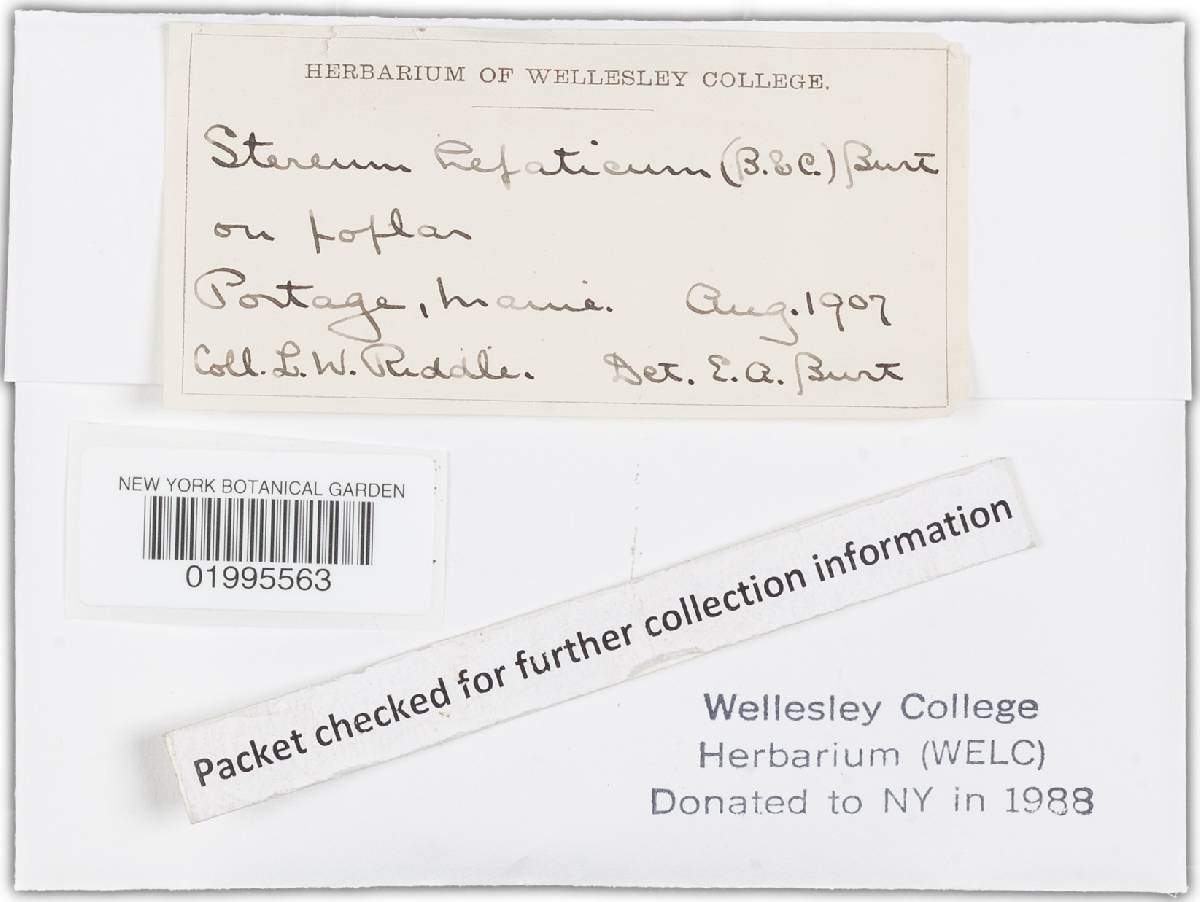 HERBARIUM OF WELLESLEY COLLEGE.
Stereum hepaticum (B.&C.) Burt
on poplar
Portage, Maine. Aug. 1907
Coll. L. W. Riddle. Det. E. A. Burt
NEW YORK BOTANICAL GARDEN
01995563
Packet checked for further collection information
Wellesley College
Herbarium (WELC)
Donated to NY in 1988